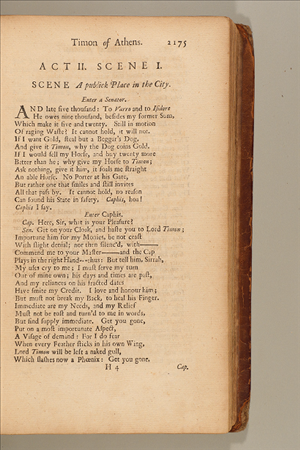 Timon of Athens. 2175
ACT II. SCENE I.
SCENE A publick Place in the City.
Enter a Senator.
AND late five thousand: To Varro and to Isidore
He owes nine thousand, besides my former Sum,
Which make it five and twenty. Still in motion
Of raging Waste? It cannot hold, it will not.
If I want Gold, steal but a Beggar's Dog,
And give it Timon, why the Dog coins Gold.
If I would sell my Horse, and buy twenty more
Better than he; why give my Horse to Timon;
Ask nothing, give it him, it foals me straight
An able Horse. No Porter at his Gate,
But rather one that smiles and still invites
All that pass by. It cannot hold, no reason
Can found his State in safety. Caphis, hoa!
Caphis I say.
Enter Caphis.
Cap. Here, Sir, what is your Pleasure?
Sen. Get on your Cloak, and haste you to Lord Timon;
Importune him for my Monies, be not ceast
With slight denial; nor then silenc'd, with——
Commend me to your Master——and the Cap
Plays in the right Hand—thus: But tell him, Sirrah,
My uses cry to me; I must serve my turn
Out of mine own; his days and times are past,
And my reliances on his fracted dates
Have smite my Credit. I love and honour him;
But must not break my Back, to heal his Finger.
Immediate are my Needs, and my Relief
Must not be tost and turn'd to me in words,
But find supply immediate. Get you gone,
Put on a most importunate Aspect,
A Visage of demand: For I do fear
When every Feather sticks in his own Wing,
Lord Timon will be left a naked gull,
Which flashes now a Phœnix: Get you gone.
H 4 Cap.